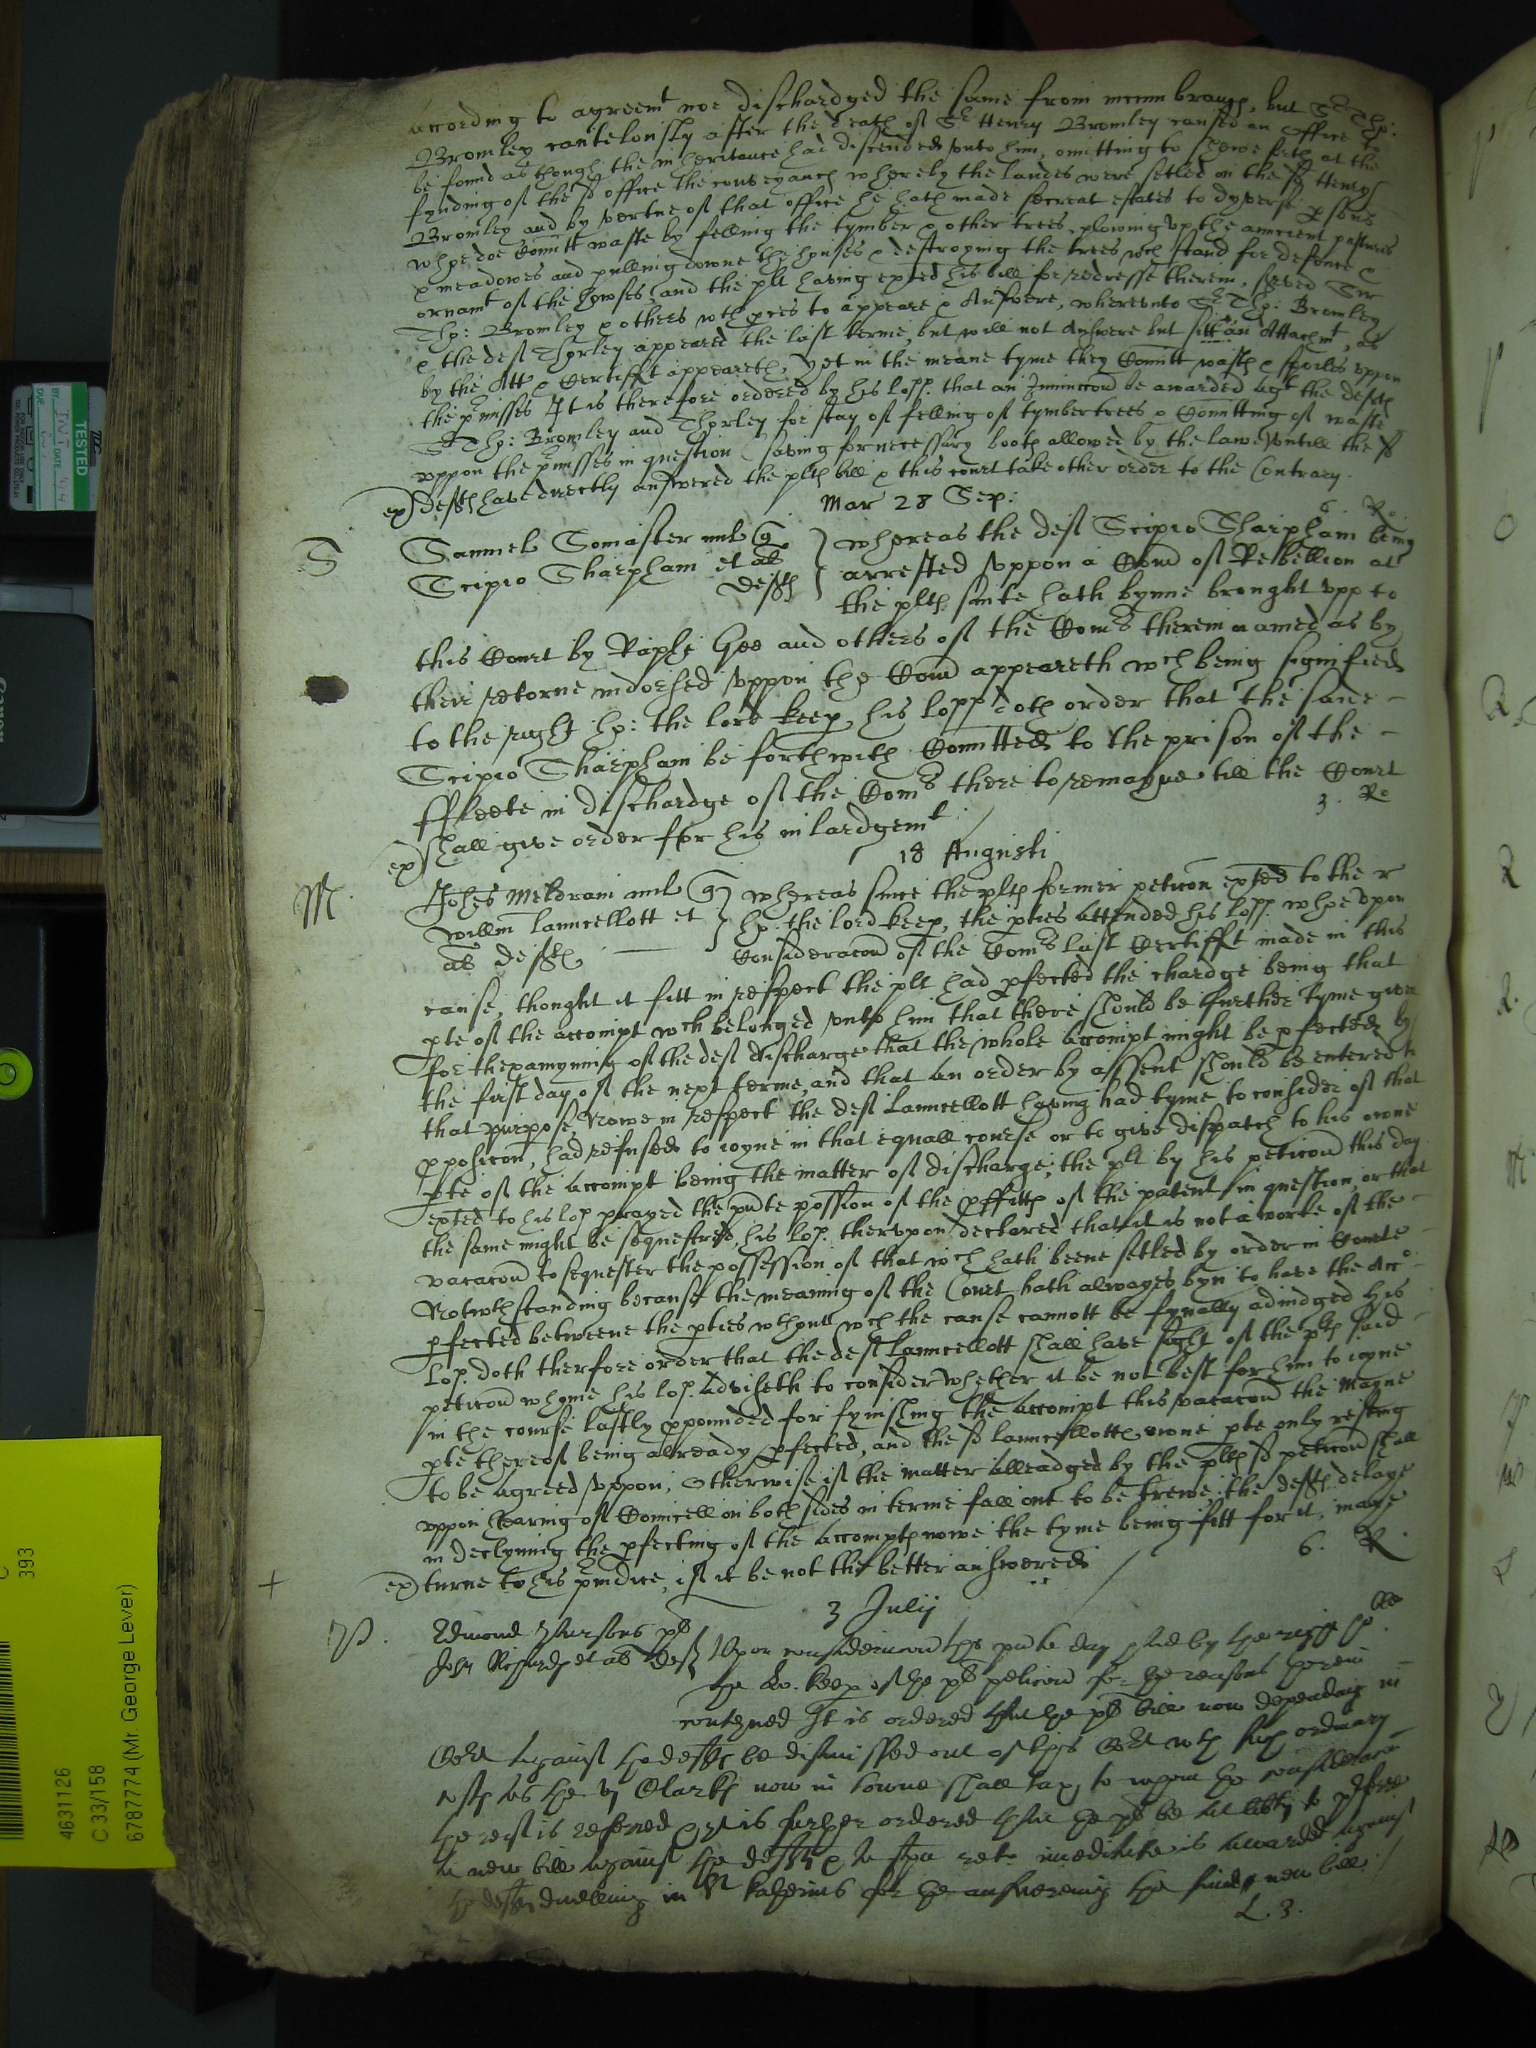 according to agreemt nor dischardged the same from incumbraunce, but Sr Tho:
Bromley cautelously after the death of Sr Henry Bromley caused an office to
be found as though the inheritance had discended unto him, omitting to shewe forth at the
fynding of the sd office the conveyance whereby the landes were setled on the sd Henry
Bromley and by vertue of that office he hath made secreat estates to dyverse psons
whoe doe Comitt waste by felling the tymber & other trees, plowing up the auncient pastures
& meadowes and pulling downe the houses & destroying the trees wch stand for defence &
ornamt of the howses, and the plt having exted his bill for redresse therein, served Sr
Tho: Bromley & others wth pces to appeare & Answere, whereunto Sr Tho: Bromley
& the deft Thorley appeared the last terme, but will not Answere but sitt an Attachmt, as
by the Att & Certifft appeareth, yet in the meane tyme they Comitt wasts & spoiles uppon
the pmisses It is therefore ordered by his lopp. that an Iniuncion be awarded agt the defts
Sr Tho: Bromley and Thorley for stay of felling of tymbertrees & Comitting of waste
uppon the pmisses in question saving for necessary boots allowed by the lawe untill the sd
ex) defts have directly answered the plts bill & this court take other order to the Contrary.
Mar 28 Sep: 6 Ro.
S
Samuel Somaster mil Q whereas the deft Scipio Sharpham being
Scipio Sharpham et al arrested uppon a Com of Rebellion at
defts the plts suite hath bynne brought upp to
this Court by Raphe Gee and others of the Comrs therein named as by
their retorne indorsed uppon the Com appeareth wch being signified
to the right ho: the lord keep, his lopp doth order that the said
Scipio Sharpham be forthwith Comitted to the prison of the
ffleete in dischardge of the Comrs there to remayne till the Court
ex) shall give order for his inlardgemt 3. Ro
18 Augusti
M.
Johes Meldram mil Q whereas since the plts former peticon exted to the r
Willm Launcellott et ho: the lord keep, the pties attended his lopp. whoe upon
al defts Consideracon of the Comrs last Certifft made in this
cause, thought it fitt in respect the plt had pfected the chardge being that
pte of the accompt wch belonged unto him that there should be further tyme given
for thexamyning of the deft discharge that the whole accompt might be pfected by
the first day of the next terme, and that an order by assent should be entered to
that purpose, Nowe in respect the deft Launcellott having had tyme to consider of that
pposicon, had refused to ioyne in that equall course or to give dispatch to his owne
pte of the accompt being the matter of discharge; the plt by his peticon this day
exted to his lop prayed the pnte possion of the pffitts of the patent in question, or that
the same might be sequestred, his lop. thereupon declared that it is not a worke of the
vacacon to sequester the possession of that wch hath beene setled by order in Courte
Notwthstanding because the meaning of the Court hath alwayes byn to have the Acco
pfected betweene the pties wthout wch the cause cannott be fynally adiudged his
lop. doth therfore order that the deft Launcellott shall have sight of the plts said
peticon whome his lop. Adviseth to consider whether it be not best for him to ioyne
in the course lastly ppounded for fynishing the accompt this vacacon the mayne
pte thereof being already pfected, and the sd Launcellotts owne pte only resting
to be agreed uppon, Otherwise if the matter alleadged by the plts sd peticon shall
uppon hearing of Councell on both sides in terme fall out to be trewe, the defts delaye
in declyning the pfecting of the accompts nowe the tyme being fitt for it, maye
ex) turne to his pniudice, if it be not the better answered 6. R
3 Julij
P.
Edmond Parsons plt Upon consideracon this pnte day had by the right ho:ble
John deft the Lo. keep of the plts peticon for the reasons therein
conteyned It is ordered that the plts bill now depending in
Court against the defts be dismissed out of this Court wth such ordinary
costs as the vj Clarks now in towne shall tax, to whom the consideracon
thereof is referred & it is further ordered that the plt be at libty to pferre
a new bill against the defts & a spa rete imediate is awarded against
the defts dwelling in St Katherins for the answereing the said new bill.
L. 3.
TESTED
BY INT DATE
DUE
Canon
C
393
4631126
C 33/158
6787774 (Mr. George Lever)